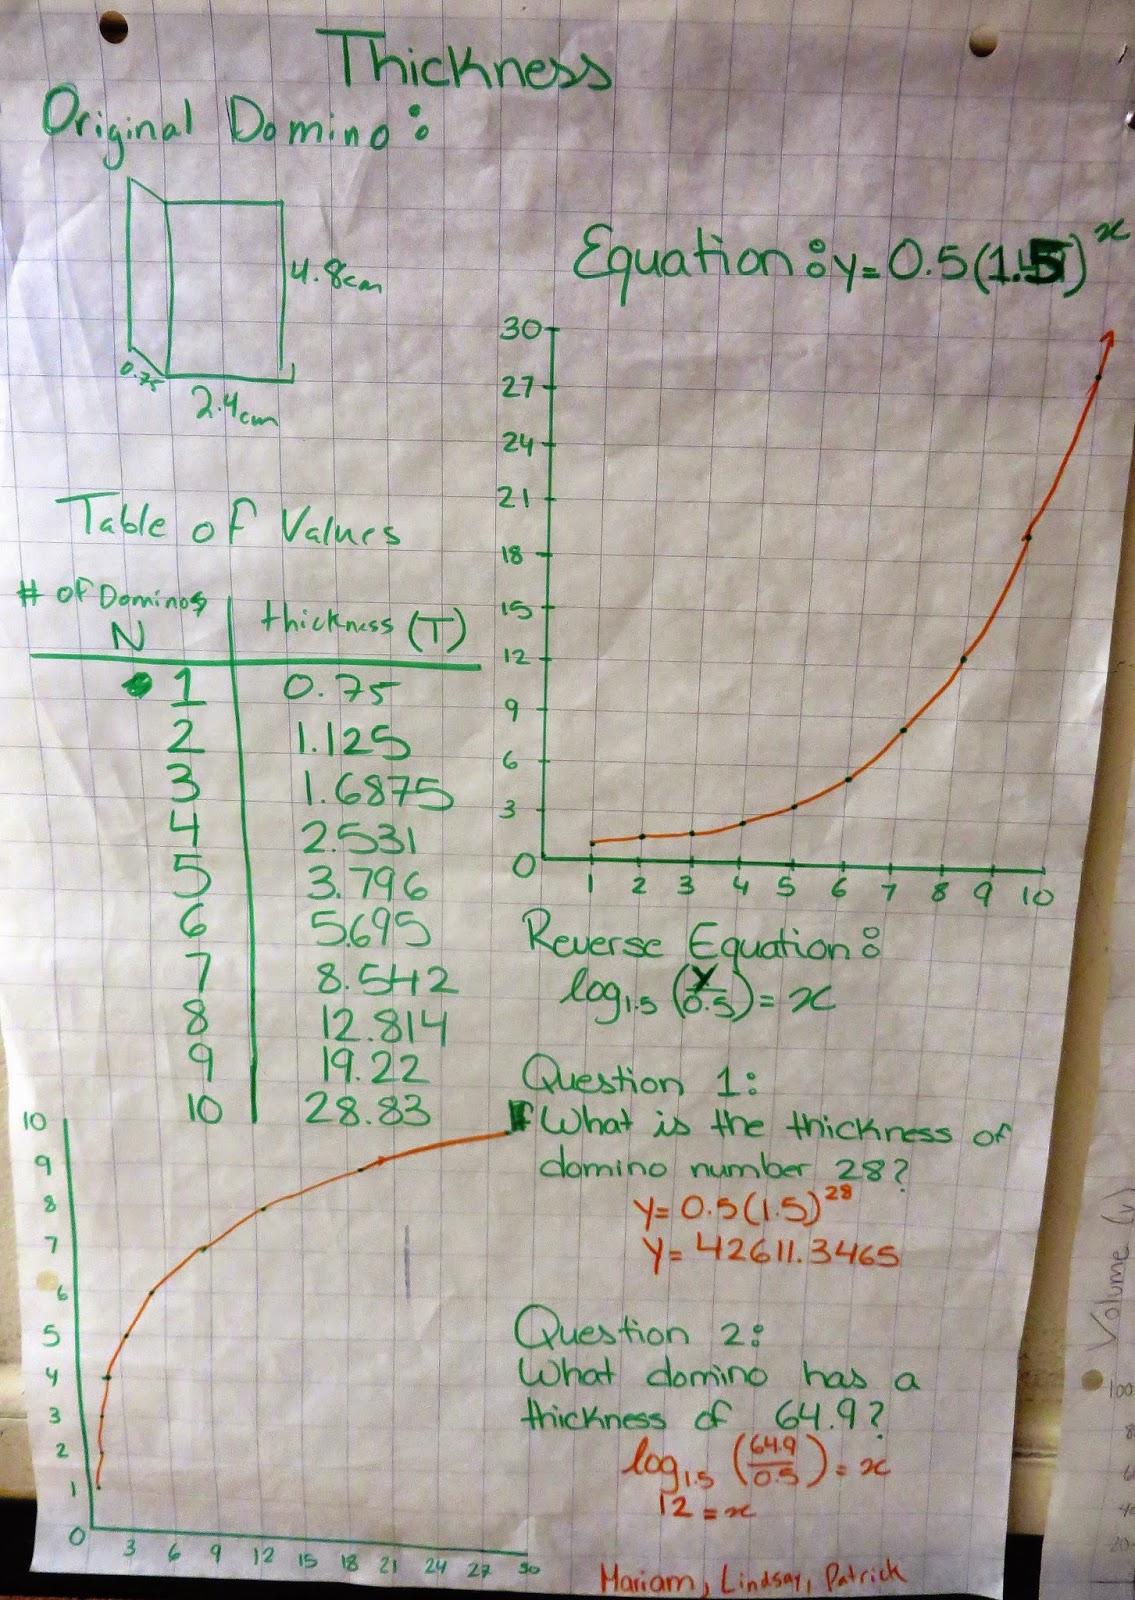 Thickness
Original Domino:
4.8cm
0.75
2.4cm
Equation: y= 0.5(1.5)^x
30
27
24
21
18
15
12
9
6
3
0
1 2 3 4 5 6 7 8 9 10
Table of Values
# of Dominos N | thickness (T)
1 | 0.75
2 | 1.125
3 | 1.6875
4 | 2.531
5 | 3.796
6 | 5.695
7 | 8.542
8 | 12.814
9 | 19.22
10 | 28.83
Reverse Equation:
log1.5 (y/0.5) = x
Question 1:
What is the thickness of
domino number 28?
y= 0.5(1.5)^28
y= 42611.3465
Question 2:
What domino has a
thickness of 64.9?
log1.5 (64.9/0.5) = x
12 = x
10
9
8
7
6
5
4
3
2
1
0
3 6 9 12 15 18 21 24 27 30
Mariam, Lindsay, Patrick
Volume
100